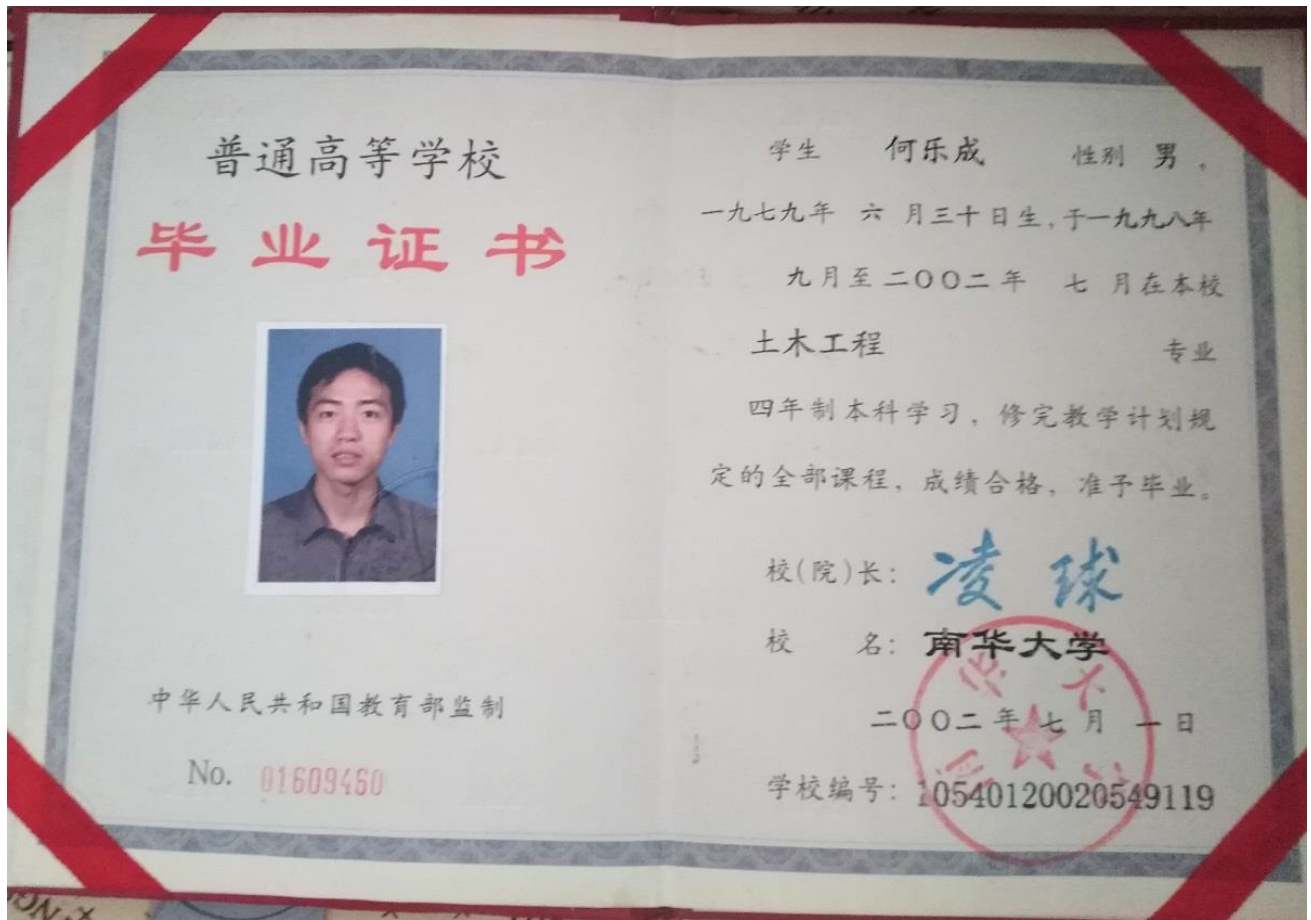 普通高等学校
毕业证书
中华人民共和国教育部监制
No. 01609460
学生 何乐成 性别 男 ,
一九七九年 六 月三十日生,于一九九八年
九月至二〇〇二年 七 月在本校
土木工程 专业
四年制本科学习,修完教学计划规
定的全部课程,成绩合格,准予毕业。
校(院)长: 凌球
校 名: 南华大学
二〇〇二年 七 月 一 日
学校编号: 10540120020549119